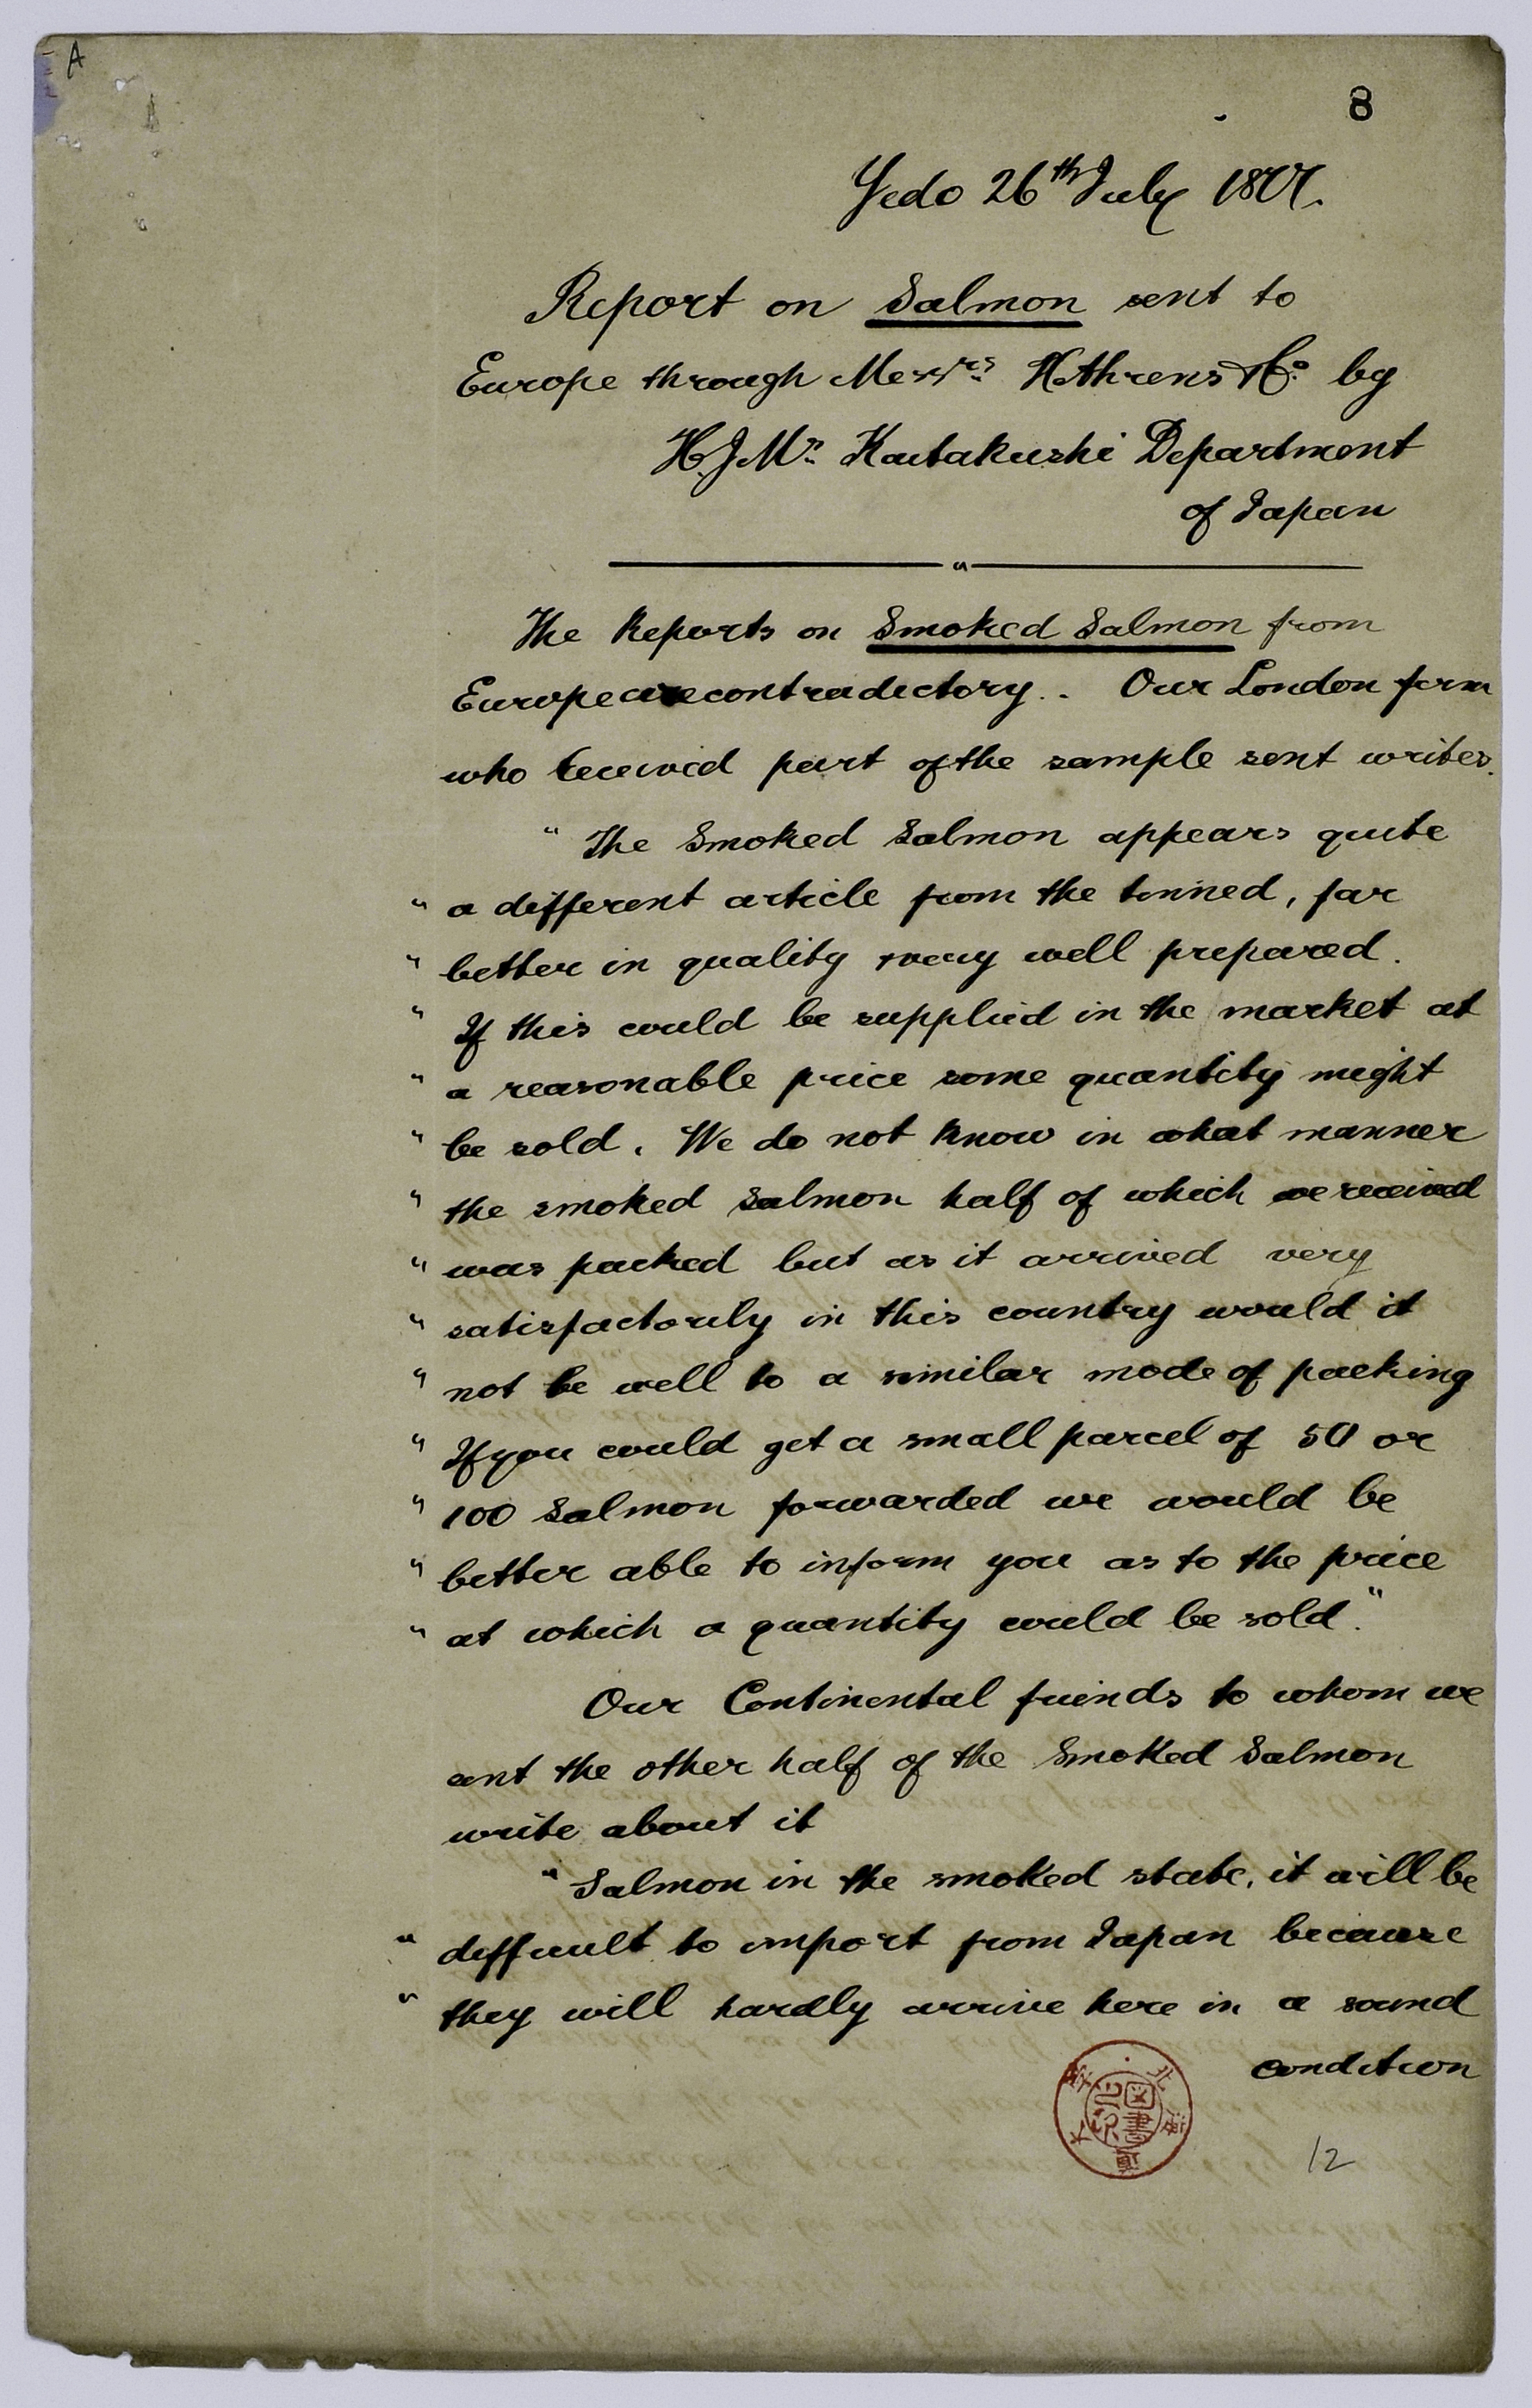 A
8
Yedo 26th July 1877.
Report on Salmon sent to
Europe through Messrs H Ahrens & Co by
H.J.Ms Kaitakushi Department
of Japan
The Reports on Smoked Salmon from
Europe are contradictory.. Our London firm
who received part of the sample sent writes.
" The Smoked Salmon appears quite
" a different article from the tinned, far
" better in quality & very well prepared.
" If this could be supplied in the market at
" a reasonable price some quantity might
" be sold. We do not know in what manner
" the smoked Salmon half of which we received
" was packed but as it arrived very
" satisfactorily in this country would it
" not be well to a similar mode of packing
" If you could get a small parcel of 50 or
" 100 Salmon forwarded we would be
" better able to inform you as to the price
" at which a quantity could be sold."
Our Continental friends to whom we
sent the other half of the Smoked Salmon
write about it
" Salmon in the smoked state, it will be
" difficult to import from Japan because
" they will hardly arrive here in a sound
condition
12